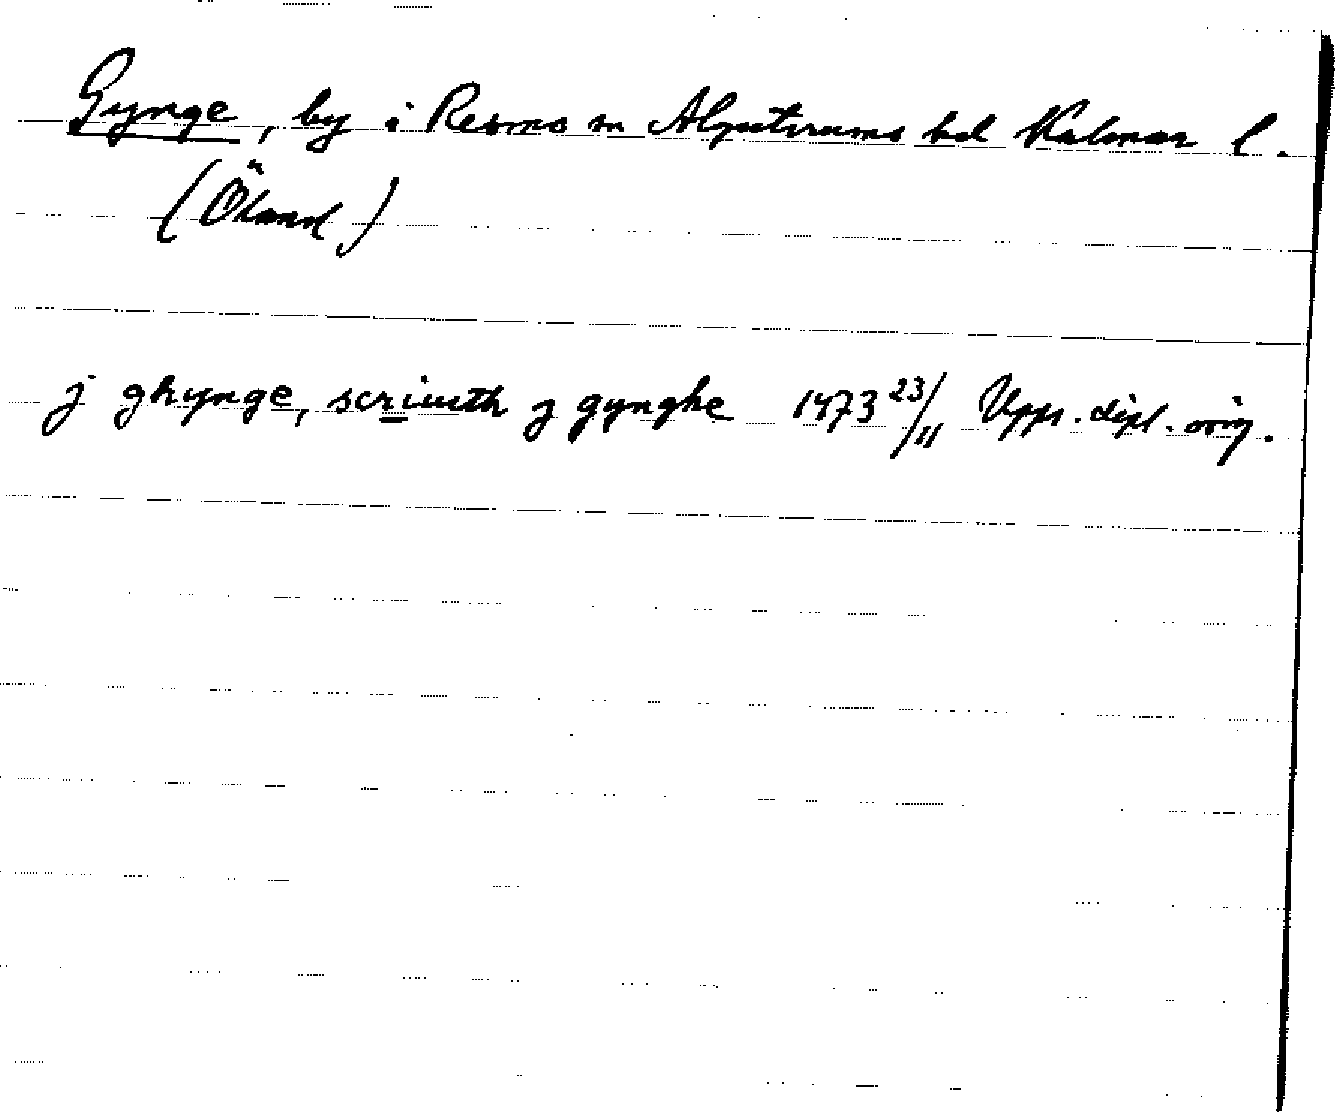 Gynge, by i Resmo sn Algutsrums hd Kalmar l.
(Öland)
j ghynge, scriwith j gynghe 1473 23/11 Upps. dipl. orig.